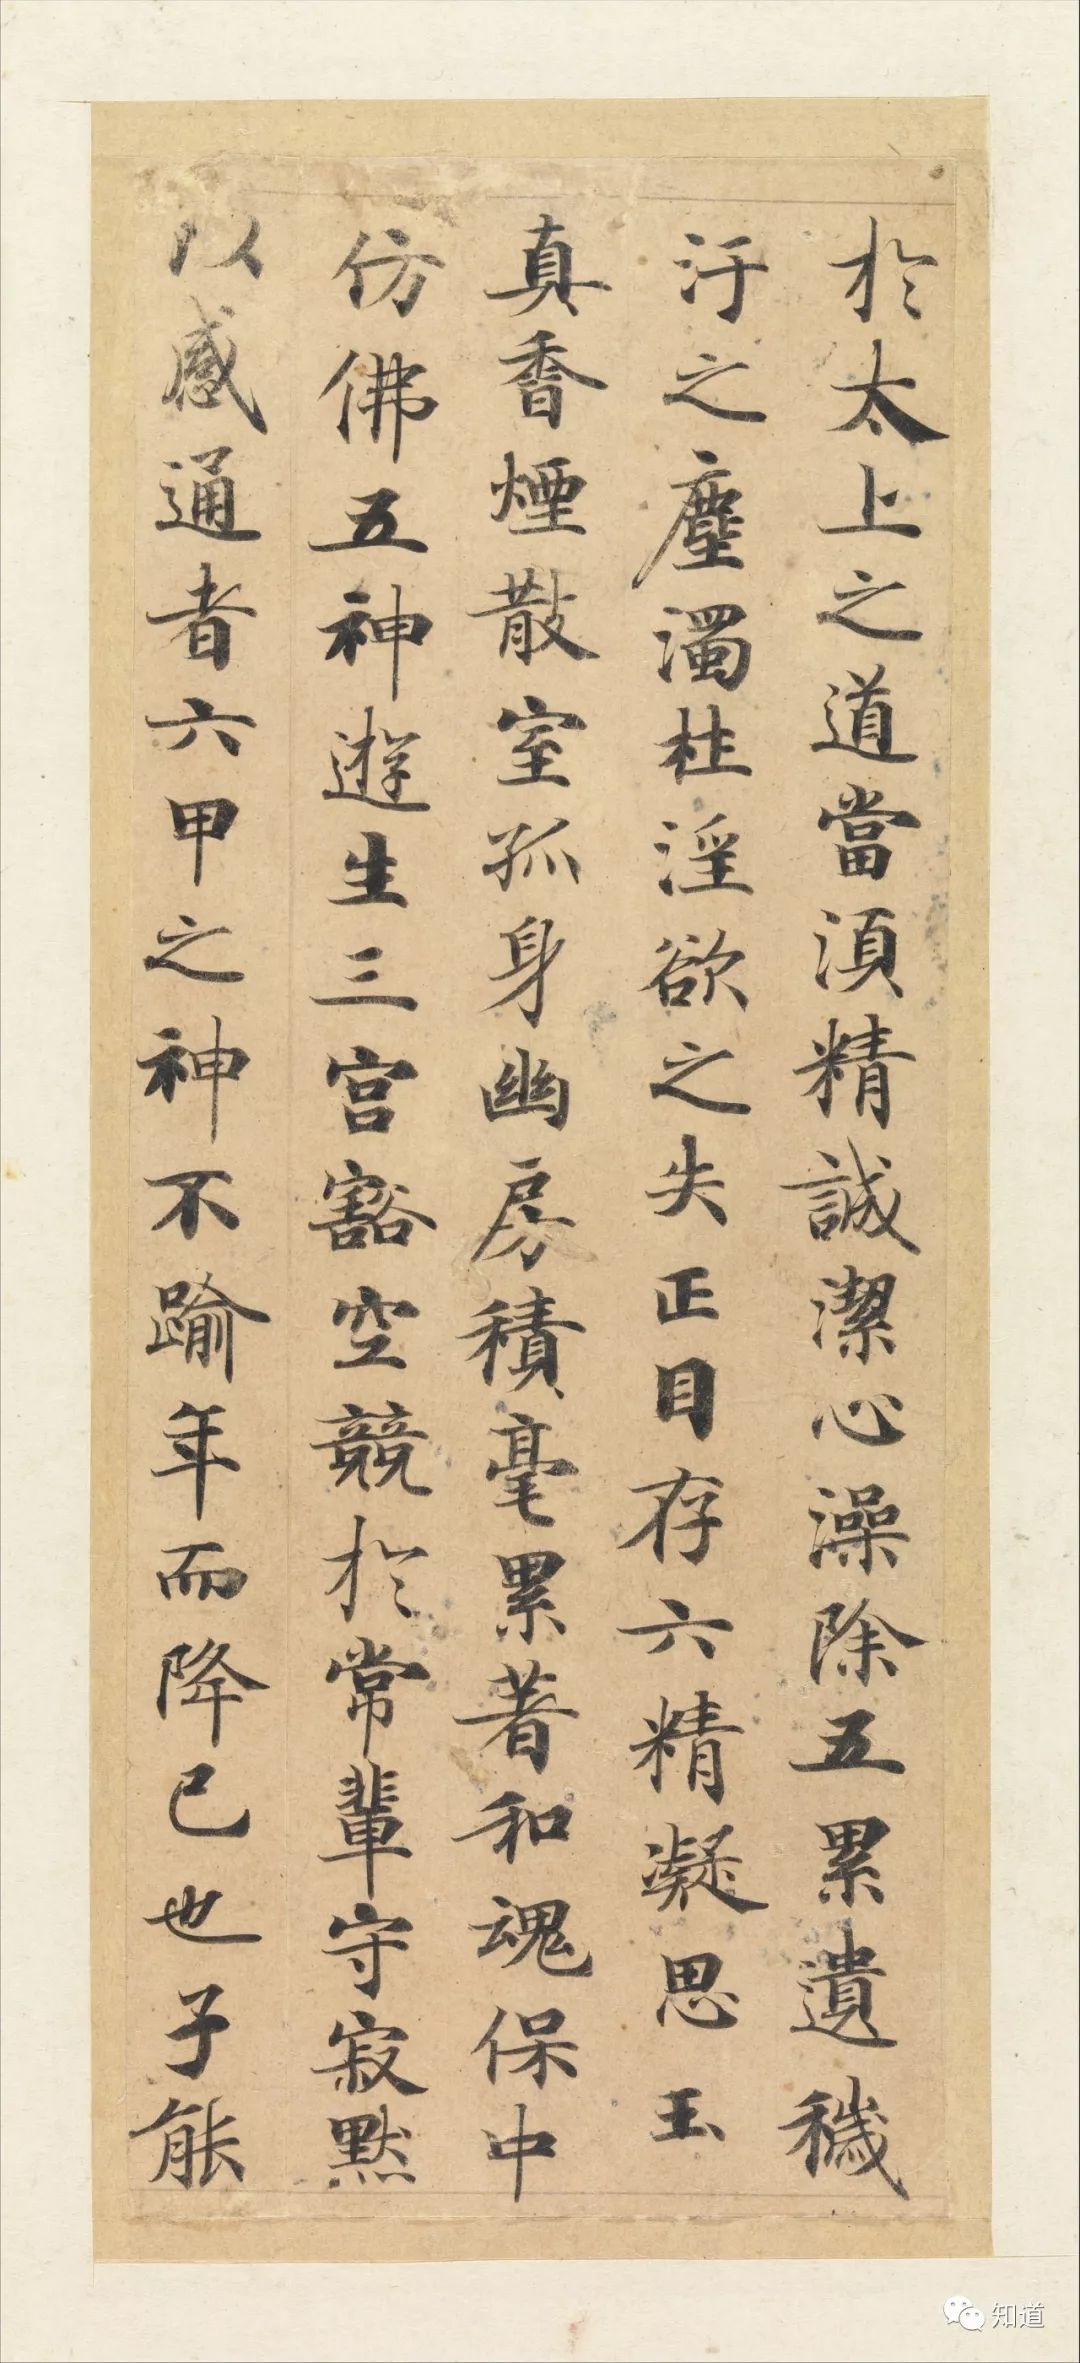 於太上之道當須精誠潔心澡除五累遺穢
汙之塵濁杜淫欲之失正目存六精凝思玉
真香煙散室孤身幽房積毫累著和魂保中
仿佛五神遊生三宮豁空競於常輩守寂默
以感通者六甲之神不踰年而降已也子能
知道